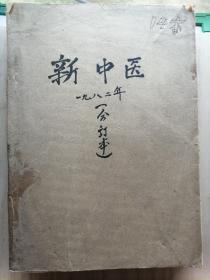 新中医
一九八二年
（合订本）